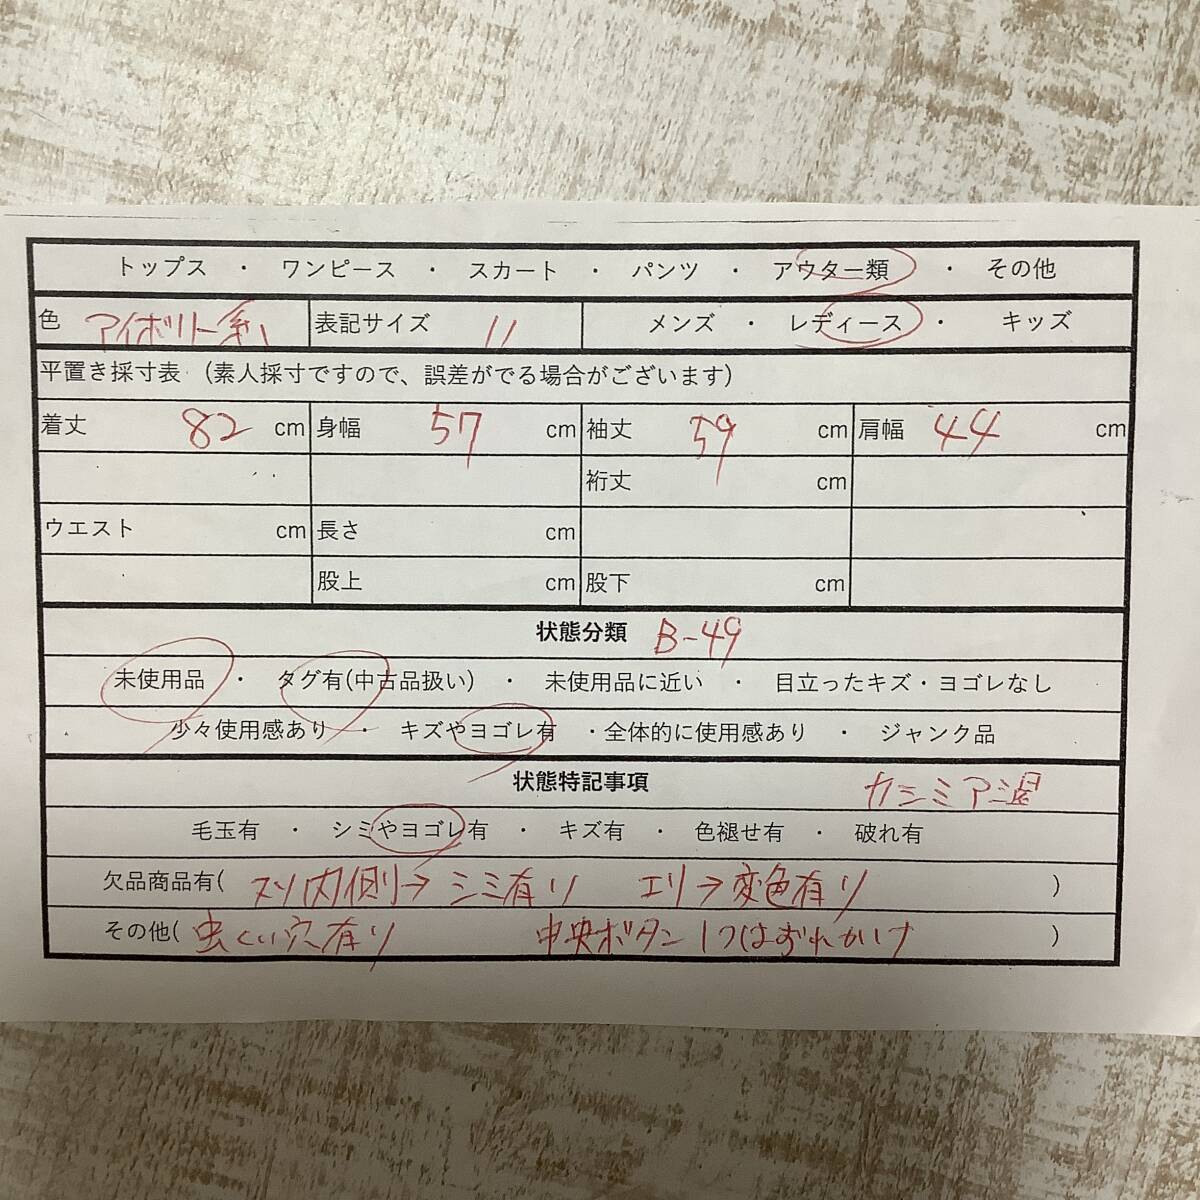 トップス ・ ワンピース ・ スカート ・ パンツ ・ アウター類 ・ その他
色 アイボリー系 表記サイズ 11 メンズ ・ レディース ・ キッズ
平置き採寸表 (素人採寸ですので、誤差がでる場合がございます)
着丈 82 cm 身幅 57 cm 袖丈 59 cm 肩幅 44 cm
裄丈 cm
ウエスト cm 長さ cm
股上 cm 股下 cm
状態分類 B-49
未使用品 ・ タグ有(中古品扱い) ・ 未使用品に近い ・ 目立ったキズ・ヨゴレなし
少々使用感あり ・ キズやヨゴレ有 ・全体的に使用感あり ・ ジャンク品
状態特記事項 カシミア混
毛玉有 ・ シミやヨゴレ有 ・ キズ有 ・ 色褪せ有 ・ 破れ有
欠品商品有( スソ内側→シミ有り エリ→変色有り )
その他( 虫くい穴有り 中央ボタン1つはずれかけ )